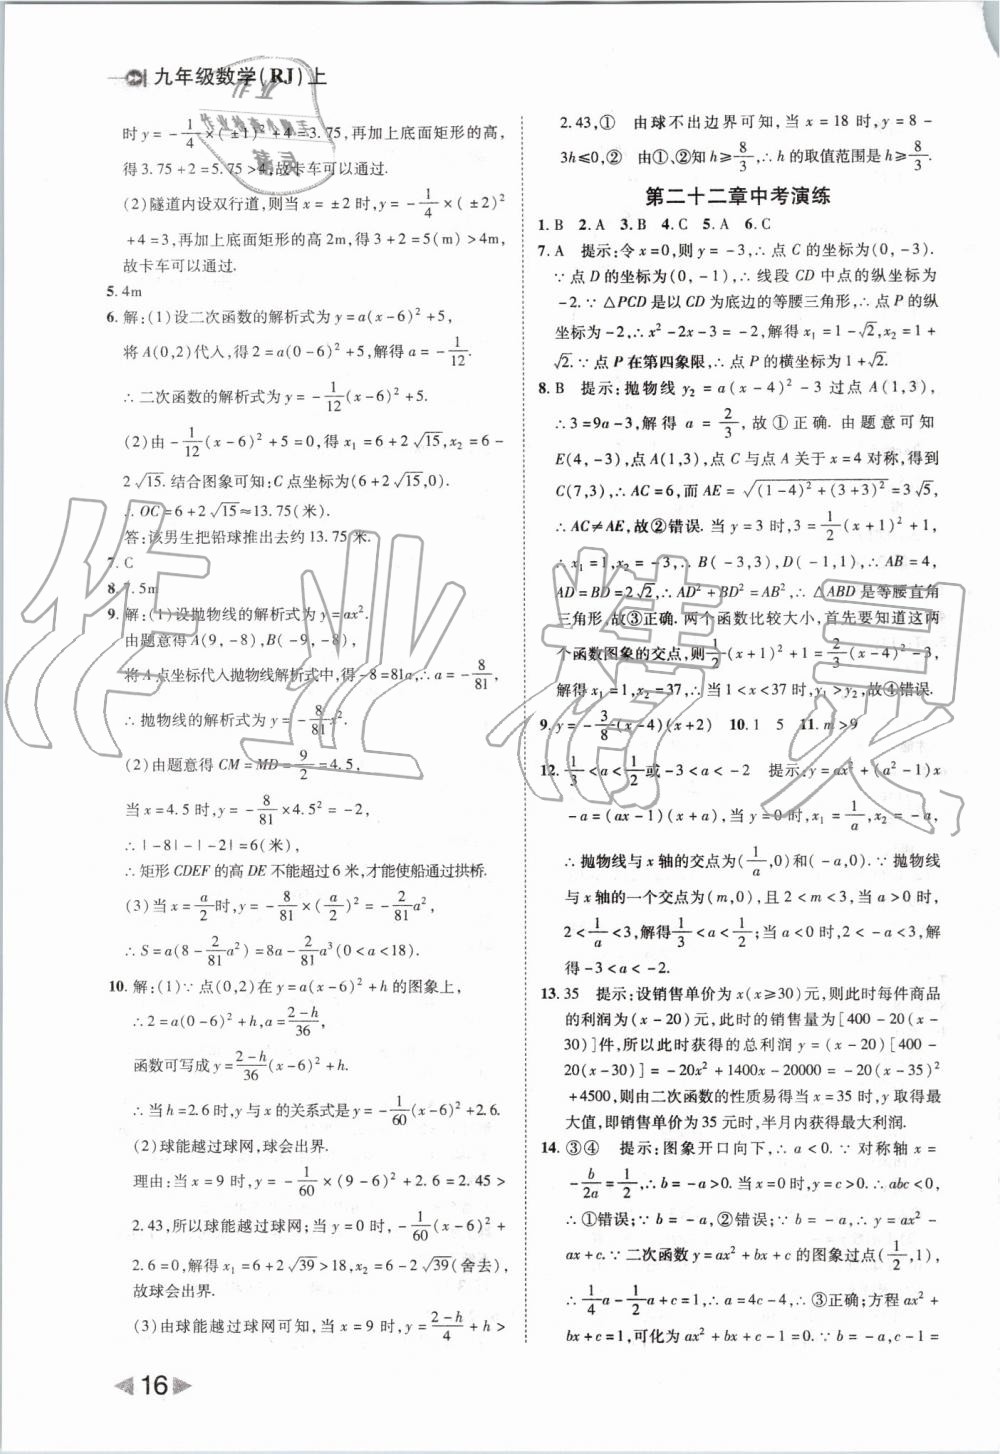 九年级数学(RJ)上
时y=-1/4×(±1)²+4=3.75,再加上底面矩形的高,
得3.75+2=5.75>4,故卡车可以通过.
(2)隧道内设双行道,则当x=±2时,y=-1/4×(±2)²
+4=3,再加上底面矩形的高2m,得3+2=5(m)>4m,
故卡车可以通过.
5.4m
6.解:(1)设二次函数的解析式为y=a(x-6)²+5,
将A(0,2)代入,得2=a(0-6)²+5,解得a=-1/12.
∴二次函数的解析式为y=-1/12(x-6)²+5.
(2)由-1/12(x-6)²+5=0,得x₁=6+2√15,x₂=6-
2√15.结合图象可知:C点坐标为(6+2√15,0).
∴OC=6+2√15≈13.75(米).
答:该男生把铅球推出去约13.75米.
7.C
8.7.5m
9.解:(1)设抛物线的解析式为y=ax².
由题意得A(9,-8),B(-9,-8),
将A点坐标代入抛物线解析式中,得-8=81a,∴a=-8/81,
∴抛物线的解析式为y=-8/81x².
(2)由题意得CM=MD=9/2=4.5,
当x=4.5时,y=-8/81×4.5²=-2,
∴|-8|-|-2|=6(米),
∴矩形CDEF的高DE不能超过6米,才能使船通过拱桥.
(3)当x=a/2时,y=-8/81×(a/2)²=-2/81a²,
∴S=a(8-2/81a²)=8a-2/81a³(0<a<18).
10.解:(1)∵点(0,2)在y=a(x-6)²+h的图象上,
∴2=a(0-6)²+h,a=2-h/36,
函数可写成y=2-h/36(x-6)²+h.
∴当h=2.6时,y与x的关系式是y=-1/60(x-6)²+2.6.
(2)球能越过球网,球会出界.
理由:当x=9时,y=-1/60×(9-6)²+2.6=2.45>
2.43,所以球能越过球网;当y=0时,-1/60(x-6)²+
2.6=0,解得x₁=6+2√39>18,x₂=6-2√39(舍去),
故球会出界.
(3)由球能越过球网可知,当x=9时,y=2-h/4+h>
2.43,① 由球不出边界可知,当x=18时,y=8-
3h≤0,② 由①、②知h≥8/3,∴h的取值范围是h≥8/3.
第二十二章中考演练
1.B 2.A 3.B 4.C 5.A 6.C
7.A 提示:令x=0,则y=-3,∴点C的坐标为(0,-3).
∵点D的坐标为(0,-1),∴线段CD中点的纵坐标为
-2.∵△PCD是以CD为底边的等腰三角形,∴点P的纵
坐标为-2,∴x²-2x-3=-2,解得x₁=1-√2,x₂=1+
√2.∵点P在第四象限,∴点P的横坐标为1+√2.
8.B 提示:抛物线y₂=a(x-4)²-3过点A(1,3),
∴3=9a-3,解得a=2/3,故①正确.由题意可知
E(4,-3),点A(1,3),点C与点A关于x=4对称,得到
C(7,3),∴AC=6,而AE=√(1-4)²+(3+3)²=3√5,
∴AC≠AE,故②错误.当y=3时,3=1/2(x+1)²+1,
∴x₁=1,x₂=-3,∴B(-3,3),D(-1,1),∴AB=4,
AD=BD=2√2,∴AD²+BD²=AB²,∴△ABD是等腰直角
三角形,故③正确.两个函数比较大小,首先要知道这两
个函数图象的交点,则1/2(x+1)²+1=2/3(x-4)²-3,
解得x₁=1,x₂=37,∴当1<x<37时,y₁>y₂,故④错误.
9.y=-3/8(x-4)(x+2) 10.1 5 11.m>9
12.1/3<a<1/2或-3<a<-2 提示:y=ax²+(a²-1)x
-a=(ax-1)(x+a),当y=0时,x₁=1/a,x₂=-a,
∴抛物线与x轴的交点为(1/a,0)和(-a,0).∵抛物线
与x轴的一个交点为(m,0),且2<m<3,当a>0时,
2<1/a<3,解得1/3<a<1/2;当a<0时,2<-a<3,解
得-3<a<-2.
13.35 提示:设销售单价为x(x≥30)元,则此时每件商品
的利润为(x-20)元,此时的销售量为[400-20(x-
30)]件,所以此时获得的总利润y=(x-20)[400-
20(x-30)]=-20x²+1400x-20000=-20(x-35)²
+4500,则由二次函数的性质易得当x=35时,y取得最
大值,即销售单价为35元时,半月内获得最大利润.
14.③④ 提示:图象开口向下,∴a<0.∵对称轴x=
-b/2a=1/2,∴b=-a>0.当x=0时,y=c>0.∴abc<0,
∴①错误;∵b=-a,②错误;∵b=-a,∴y=ax²-
ax+c.∵二次函数y=ax²+bx+c的图象过点(1/2,1),
∴1/4a-1/2a+c=1,∴a=4c-4,∴③正确;方程ax²+
bx+c=1,可化为ax²+bx+c-1=0.∵b=-a,c-1=
16
作业精灵